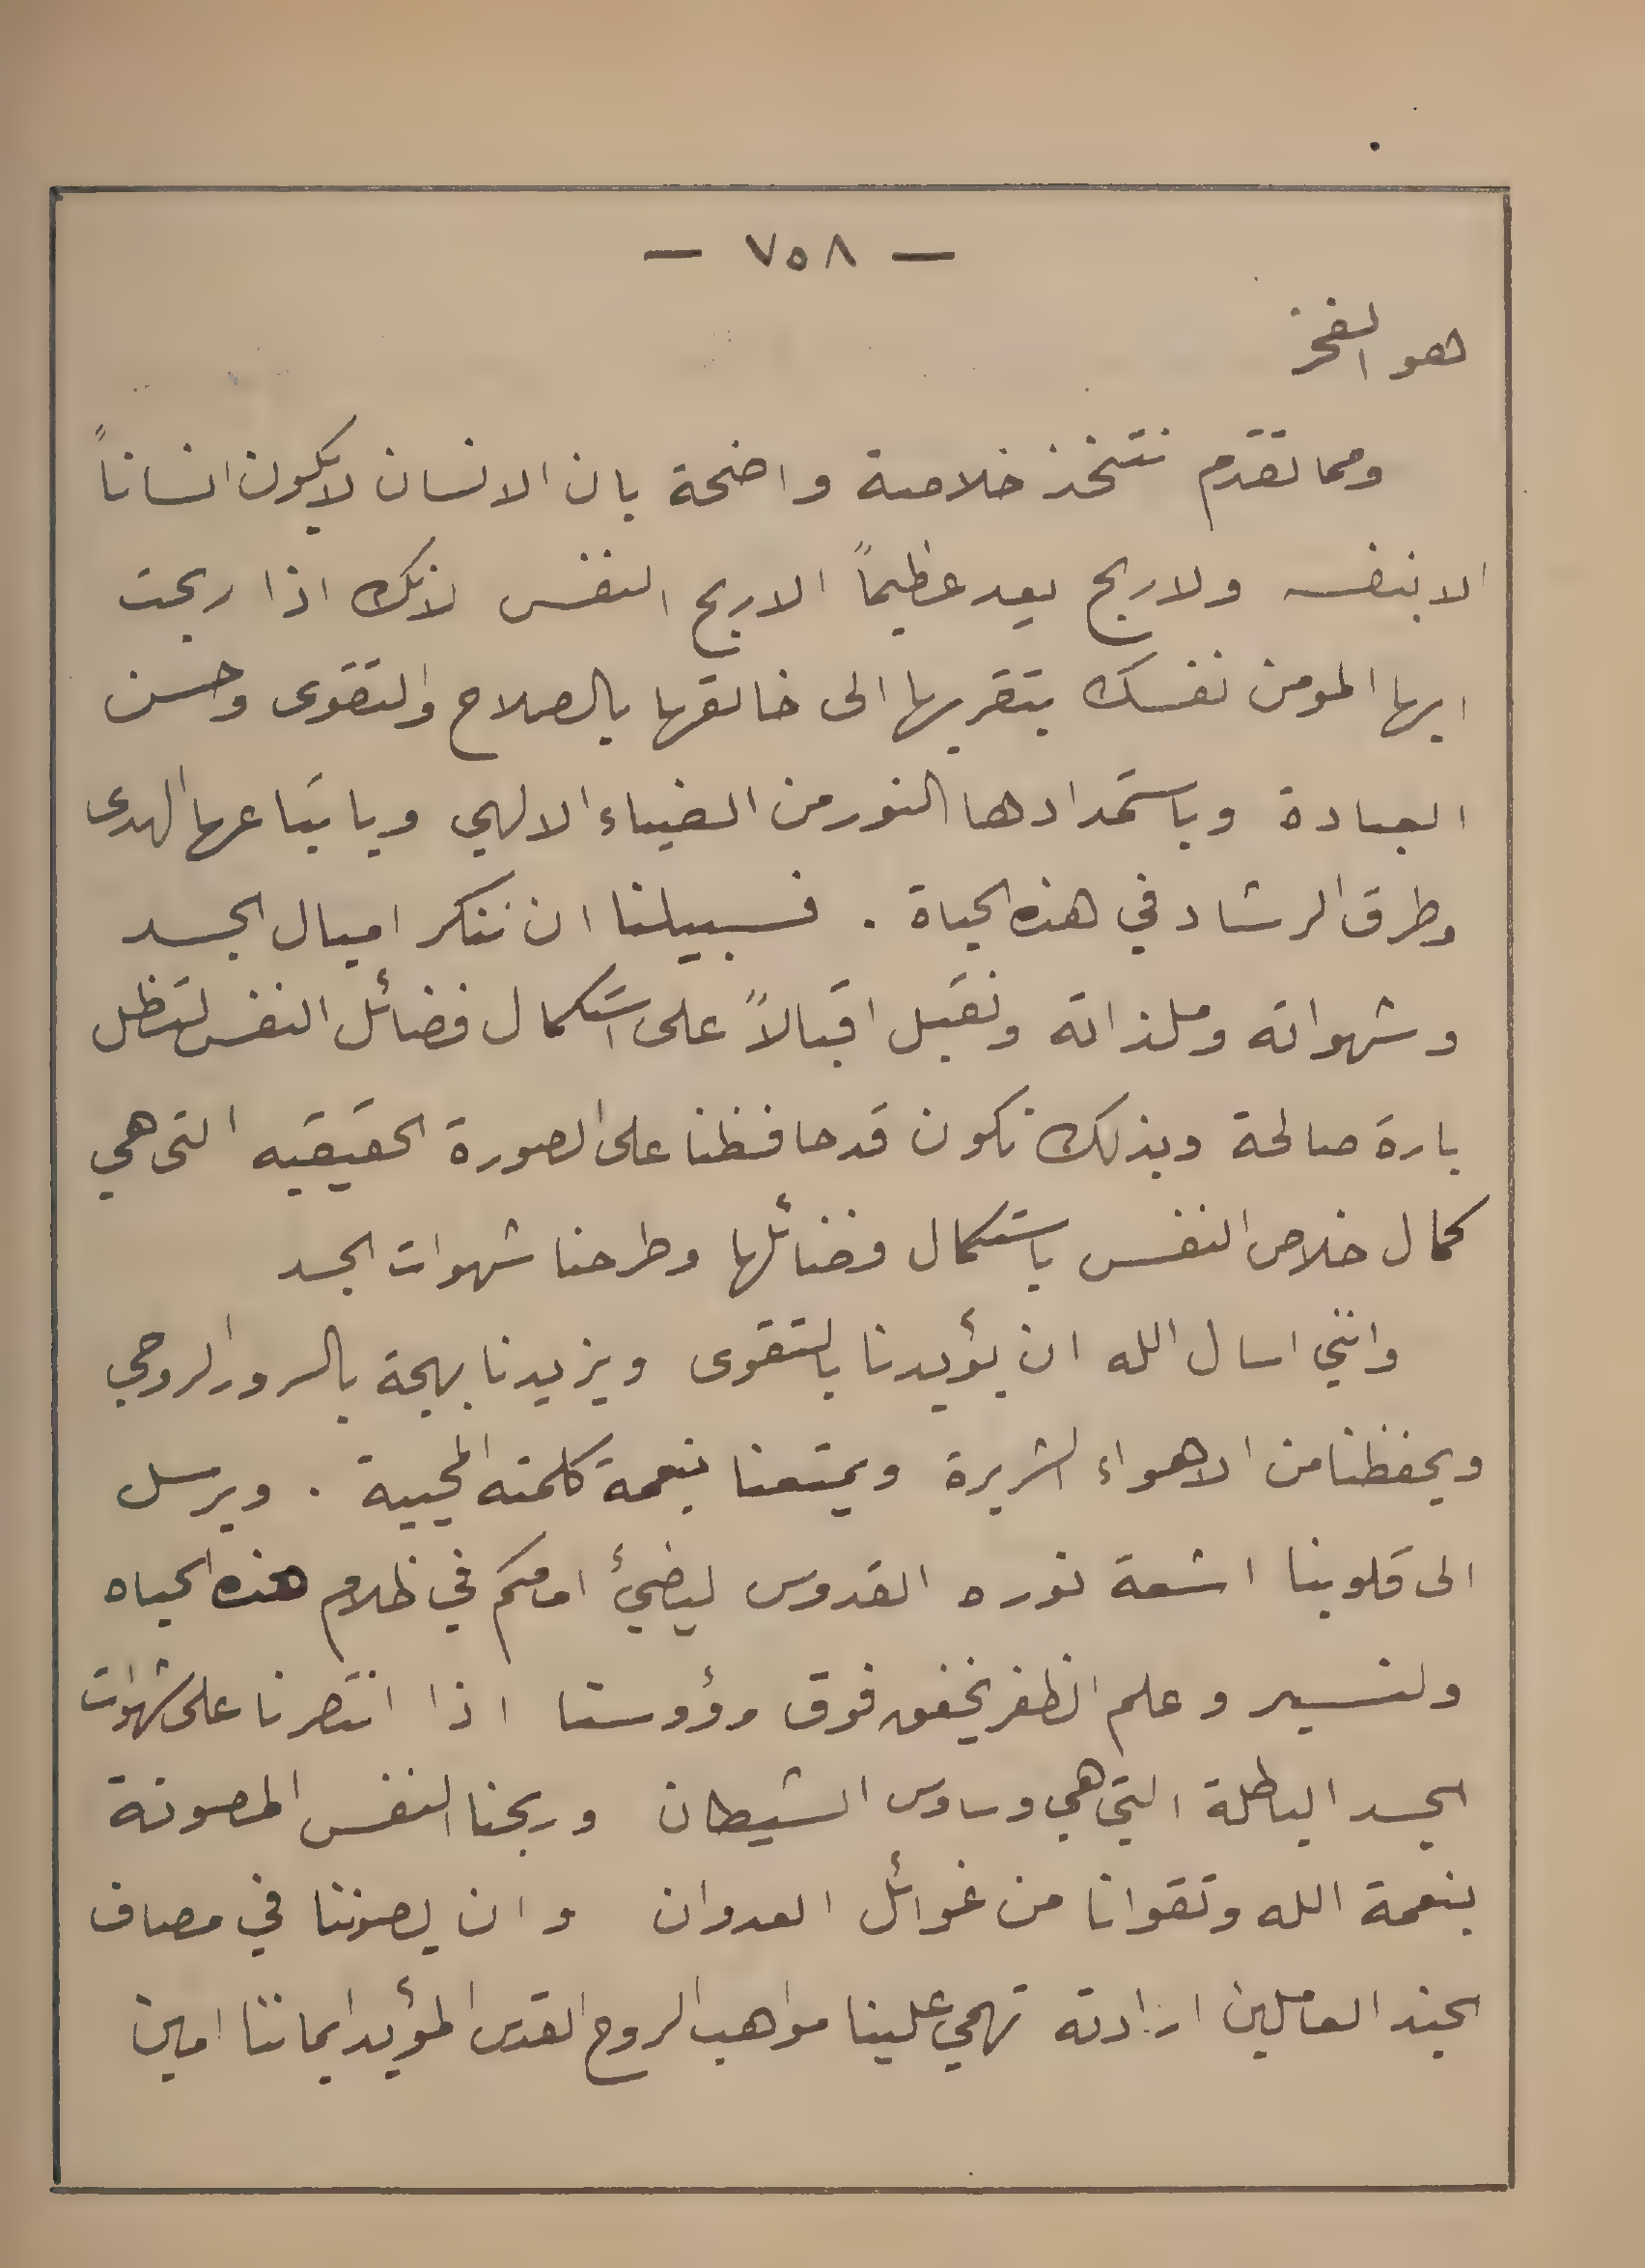 — ٧٥٨ —
هو الفخر
ومما تقدم نتخذ خلاصة واضحة بان الانسان لايكون انساناً
الا بنفسه ولا ربح يعد عظيماً الا ربح النفس لانك اذا ربحت
ايها المومن نفسك بتقربها الى خالقها بالصلاح والتقوى وحسن
العبادة وباستمدادها النور من الضياء الالهي وباتباعها الهدى
وطرق الرشاد في هذه الحياة . فسبيلنا ان ننكر اميال الجسد
وشهواته وملذاته ونقبل اقبالاً على استكمال فضائل النفس لتظل
بارة صالحة وبذلك نكون قد حافظنا على الصورة الحقيقيه التى هي
كمال خلاص النفس باستكمال فضائلها وطرحنا شهوات الجسد
وانني اسال الله ان يؤيدنا بالتقوى ويزيدنا بهجة بالسرور الروحي
ويحفظنا من الاهواء الشريرة ويمتعنا بنعمة كلمته المحيية . ويرسل
الى قلوبنا اشعة نوره القدوس ليضئ امامكم في ظلام هذه الحياه
ولنسير وعلم الظفر يخفق فوق رؤوسنا اذا انتصرنا على شهوات
الجسد الباطلة التي هي وساوس الشيطان وربحنا النفس المصونة
بنعمة الله وتقوانا من غوائل العدوان وان يصوننا في مصاف
الجند العاملين ارادته تهمي علينا مواهب الروح القدس المؤيد ايماننا امين